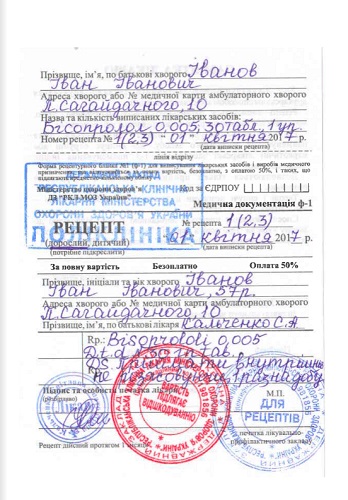 Прізвище, ім'я, по батькові хворого Іванов
Іван Іванович
Адреса хворого або № медичної карти амбулаторного хворого
П. Сагайдачного, 10
Назва та кількість виписаних лікарських засобів:
Бісопролол 0.005, 30 табл, 1 уп.
Номер рецепта № 1(2,3) "01" квітня 2017 р.
(дата виписки рецепта)
лінія відрізу
Форма рецептурного бланка №1 (ф-1) для виписування лікарських засобів і виробів медичного
призначення, вартість, безоплатно, з оплатою 50%, і таких, що
Міністерство охорони здоров'я
ДЗ "РКЛ МОЗ України"
Код за ЄДРПОУ
РЕСПУБЛІКАНСЬКА КЛІНІЧНА
ЛІКАРНЯ МІНІСТЕРСТВА
ОХОРОНИ ЗДОРОВ'Я УКРАЇНИ
ПОЛІКЛІНІКА
Медична документація ф-1
РЕЦЕПТ
№ рецепта 1(2,3)
(дорослий, дитячий)
"01" квітня 2017 р.
(потрібне підкреслити)
(дата виписки рецепта)
За повну вартість Безоплатно Оплата 50%
Прізвище, ініціали та рік хворого Іванов
Іван Іванович, 57 р.
Адреса хворого або № медичної карти амбулаторного хворого
П. Сагайдачного, 10
Прізвище, ім'я, по батькові лікаря Кальченко С.А
Rp.: Bisoprololi 0,005
D.t.d. №30 in tab.
DS
внутрішньо
ВАРТІСТЬ
ПІДЛЯГАЄ
ВІДШКОДУВАННЮ
Підпис та особиста печатка лікаря
(розбірливо)
М.П.
ДЛЯ
РЕЦЕПТІВ
печатка лікувально-
профілактичного закладу
Рецепт дійсний протягом 1